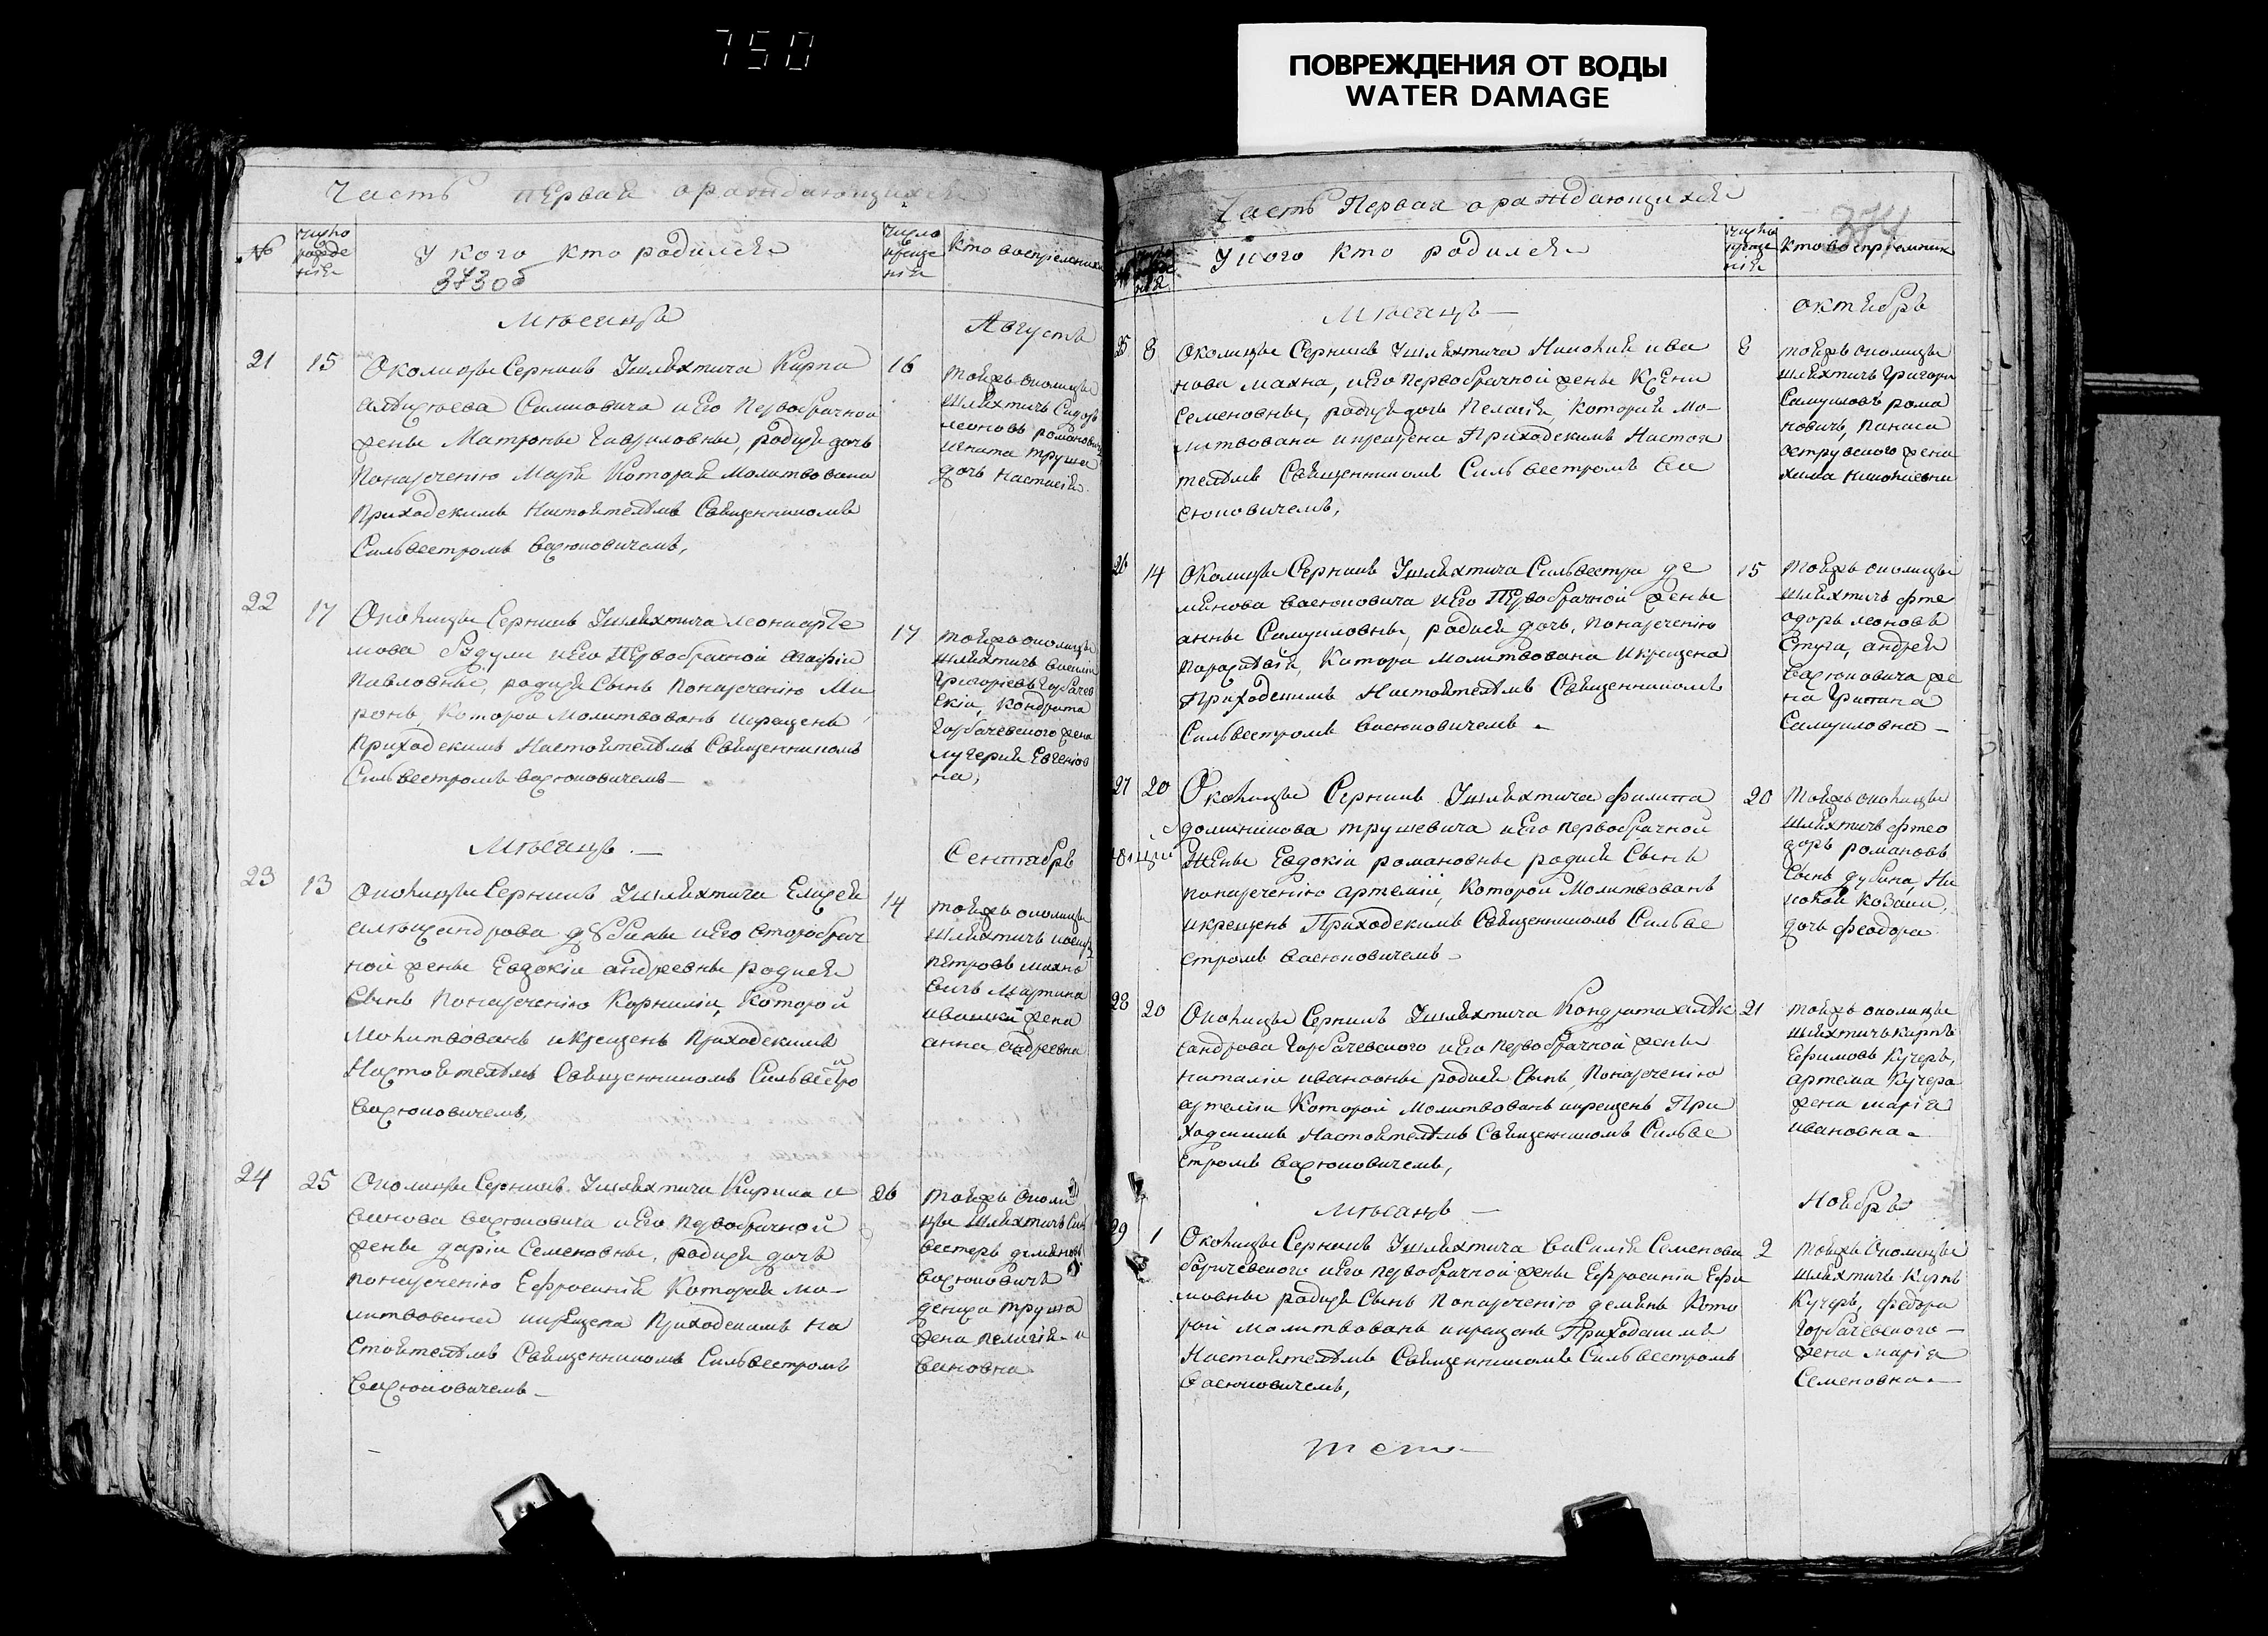 750
ПОВРЕЖДЕНИЯ ОТ ВОДЫ
WATER DAMAGE
Часть первая о раждающихся
№
число рожде нія
У кого кто родился
373 об
число креще нія
кто воспріемники
Мѣсяцъ
Августъ
21 15 Околицы Серникъ Ушляхтича Карпа
Симиовича и Его Первобрачной
жены Матроны Гавриловны, родися дочь
Понареченію Марія Которая Молитвована
Приходскимъ Настоятелѣмъ Священникомъ
Сильвестромъ Васюковичемъ,
16
тойжъ околицы
шляхтичъ Сидоръ
леоновъ романовичъ
игната труша
дочь настасія
22 17 Околицы Серникъ Ушляхтича леона арте
мова Будули и Его Первобрачной Агафіи
Павловны, родися Сынъ Понареченію Ми
ронъ, Которой Молитвованъ икрещенъ
Приходскимъ Настоятелѣмъ Священникомъ
Сильвестромъ васюковичемъ
17
тойжъ околицы
шляхтичъ василій
Григоріевъ Горбачев
скій, Кондрата
Горбачевского жена
лукерія Евгеніов
на,
Мѣсяцъ
Сентябрь
23 13 околицы Серникъ Ушляхтича Елисея
александрова дубины и Его второбрач
ной жены Евдокіи андреевны родися
Сынъ Понареченію Корнилій, Которой
Молитвованъ икрещенъ Приходскимъ
Настоятелѣмъ Священникомъ Сильвестро
васюковичемъ,
14
тойжъ околицы
шляхтичъ
петровъ махно
вичъ Мартина
ивашки жена
анна андреевна
24 25 Околицы Серникъ Ушляхтича Кирила и
ванова васюковича и Его Первобрачной
жены даріи Семеновны, родися дочь
понареченію Ефросинія Которая мо
литвована икрещена Приходскимъ на
стоятелѣмъ Священникомъ Сильвестромъ
Васюковичемъ
26
тойжъ Околи
цы шляхтичъ Сил
вестеръ деменовъ
васюковичъ
дениса труша
жена пелагія и
вановна
Часть Первая о раждающихся
374
№
число рожде нія
У кого кто родился
число креще нія
кто воспріемники
Мѣсяцъ
октябрь
25 8 околицы Серникъ Ушляхтича Никонія ива
нова махна, и Его первобрачной жены Ксени
семеновны, родися дочь Пелагія которая мо
литвована икрещена Приходскимъ Настоя
телѣмъ Священникомъ Сильвестромъ ва
сюковичемъ,
8
тойжъ околицы
шляхтичъ Григори
Самуиловъ рома
новичъ, Панаса
островского жена
26 14 околицы Серникъ Ушляхтича Сильвестра де
менова васюковича и Его Первобрачной жены
анны Самуиловны, родися дочь, понареченію
Параскевія, Котора молитвована икрещена
Приходскимъ Настоятелѣмъ Священникомъ
Сильвестромъ васюковичемъ
15
тойжъ околицы
шляхтичъ фте
одоръ леоновъ
Стуга, андрея
васюковича же
на Гритина
Самуиловна
27 20 Околицы Серникъ Ушляхтича филипа
доминикова трушевича и Его первобрачной
жены Евдокіи романовны родися Сынъ
понареченію артемій, Которой Молитвованъ
икрещенъ Приходскимъ Священникомъ Сильве
стромъ васюковичемъ
20
тойжъ околицы
шляхтичъ фтео
доръ романовъ
Сынъ дубина,
дочь феодора
28 20 Околицы Серникъ Ушляхтича Кондрата алек
сандрова Горбачевского и Его первобрачной жены
Наталіи ивановны родися Сынъ, Понареченію
артемій Которой Молитвованъ икрещенъ При
ходскимъ Настоятелѣмъ Священникомъ Сильве
стромъ васюковичемъ,
21
тойжъ околицы
шляхтичъ карпъ
Ефимовъ Кучеръ,
артема Кучера
жена марія
ивановна
Мѣсяцъ
Ноябрь
29 1 Околицы Серникъ Ушляхтича василія Семенова
боричевского и Его первобрачной жены Ефросиніи Ефи
мовны родися Сынъ Понареченію деменъ Кото
рой молитвованъ икрещенъ Приходскимъ
Настоятелѣмъ Священникомъ Сильвестромъ
васюковичемъ,
2
тойжъ Околицы
шляхтичъ Карпъ
Кучеръ, федора
Горбачевского
жена марія
Семеновна